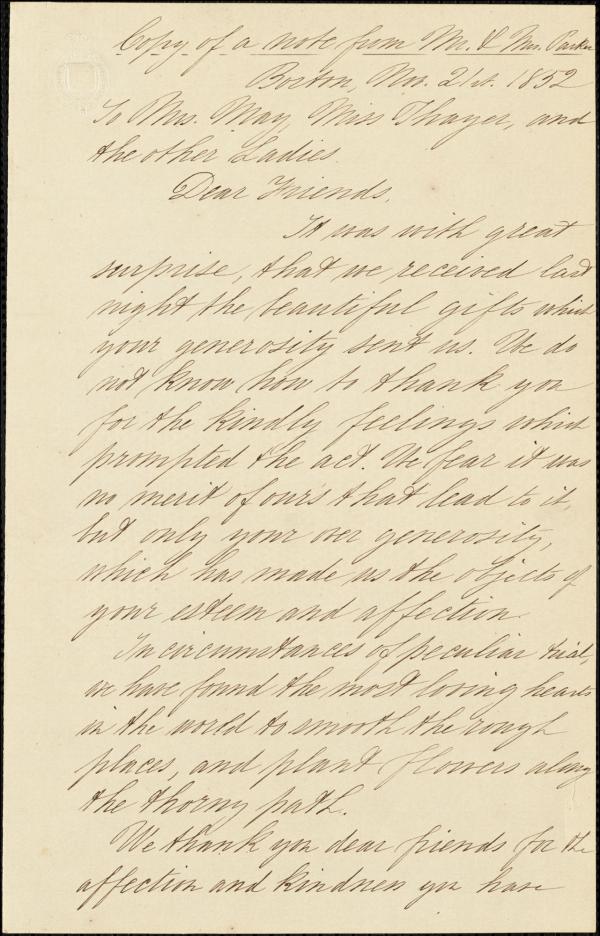 Copy of a note from Mr. & Mrs. Parker
Boston, Nov. 21st. 1852
To Mrs. May, Miss Thayer, and
the other Ladies.
Dear Friends,
It was with great
surprise, that we received last
night the beautiful gifts which
your generosity sent us. We do
not know how to thank you
for the kindly feelings which
prompted the act. We fear it was
no merit of ours that lead to it,
but only your over generosity,
which has made us the objects of
your esteem and affection.
In circumstances of peculiar trial,
we have found the most loving hearts
in the world to smooth the rough
places, and plant flowers along
the thorny path.
We thank you dear friends for the
affection and kindness you have